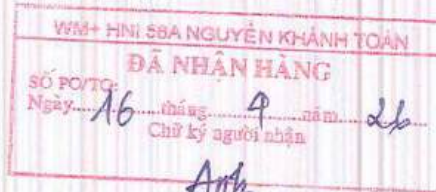 WM+ HNI 58A NGUYỄN KHÁNH TOÀN
ĐÃ NHẬN HÀNG
SỐ PO/TO:
Ngày 16 tháng 9 năm 26
Chữ ký người nhận
Anh